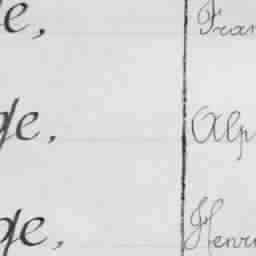 e, Fran
ge, Alp
ge, Henri